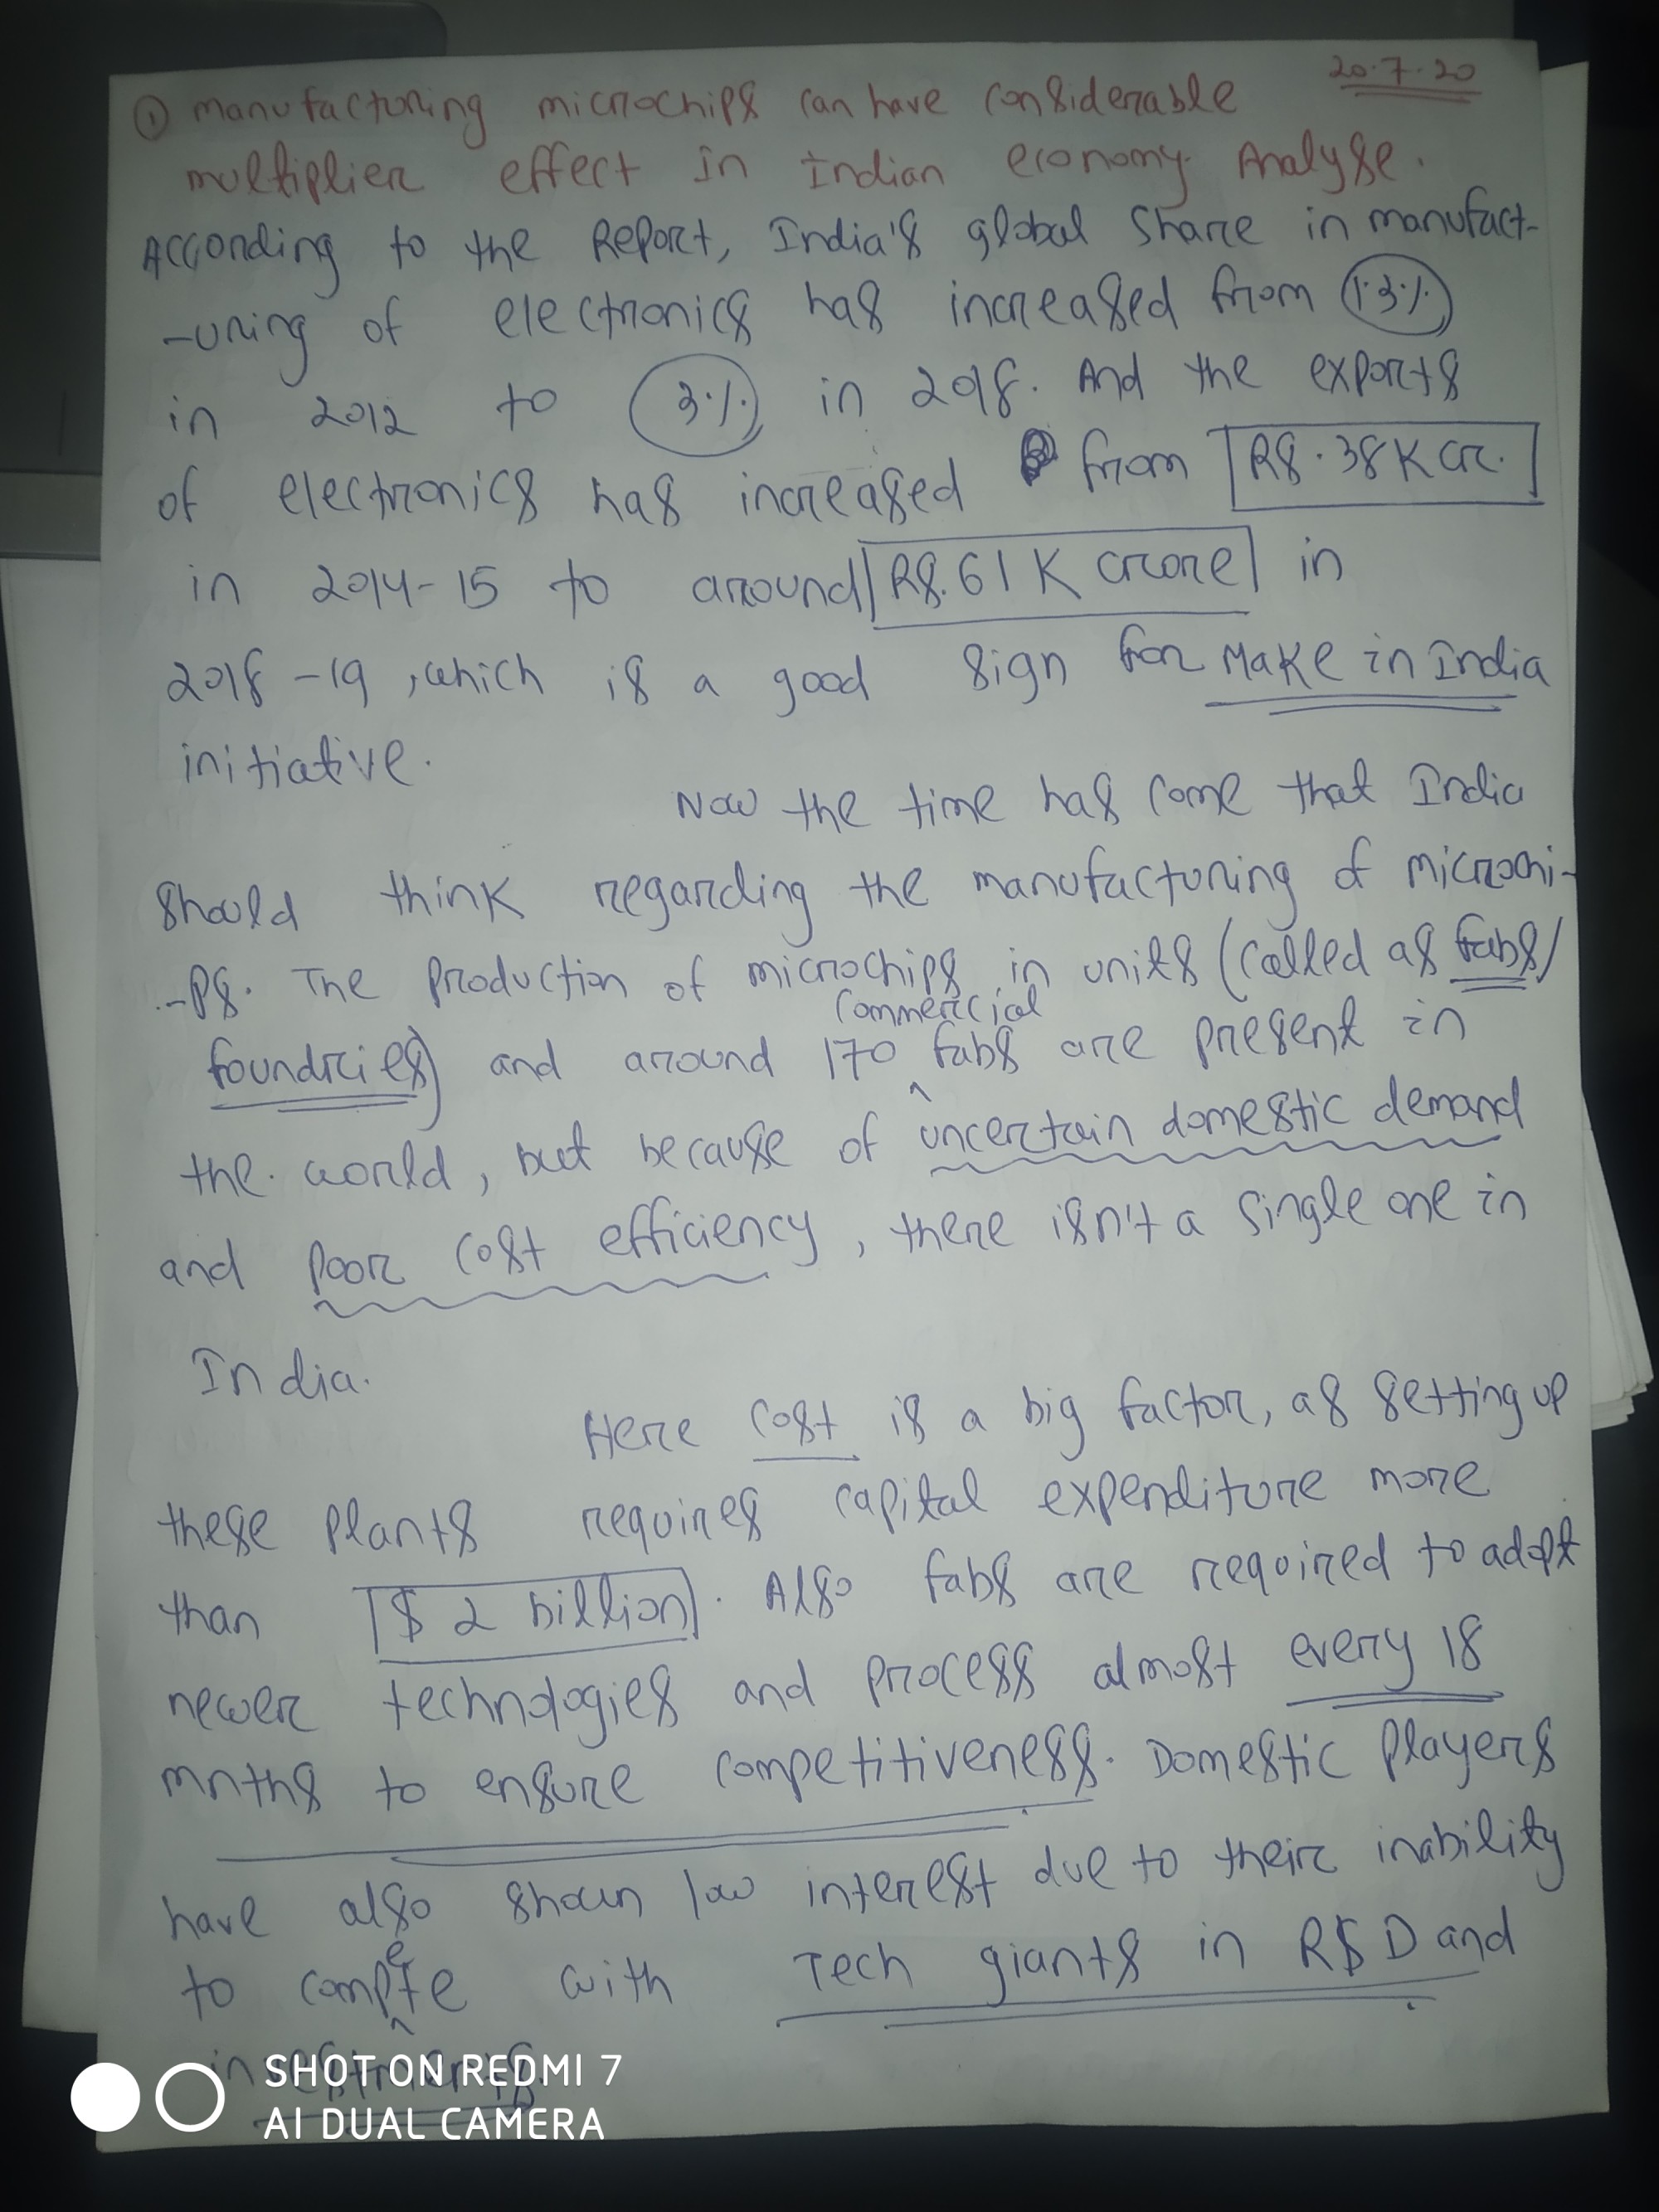 20.7.20
① Manufacturing microchips can have considerable
multiplier effect in Indian economy. Analyse.
According to the Report, India's global share in manufact-
-uring of electronics has increased from 1.3%
in 2012 to 3% in 2018. And the exports
of electronics has increased from Rs. 38K cr.
in 2014-15 to around Rs. 61 K crore in
2018-19, which is a good sign for Make in India
initiative.
Now the time has come that India
should think regarding the manufacturing of microchi-
-ps. The production of microchips in units (called as fabs/
commercial
foundries) and around 170 ^ fabs are present in
the world, but because of uncertain domestic demand
and poor cost efficiency, there isn't a single one in
India.
Here cost is a big factor, as setting up
these plants requires capital expenditure more
than $ 2 billion. Also fabs are required to adopt
newer technologies and process almost every 18
mnths to ensure competitiveness. Domestic players
have also shown low interest due to their inability
to compete with Tech giants in R&D and
investments.
SHOT ON REDMI 7
AI DUAL CAMERA